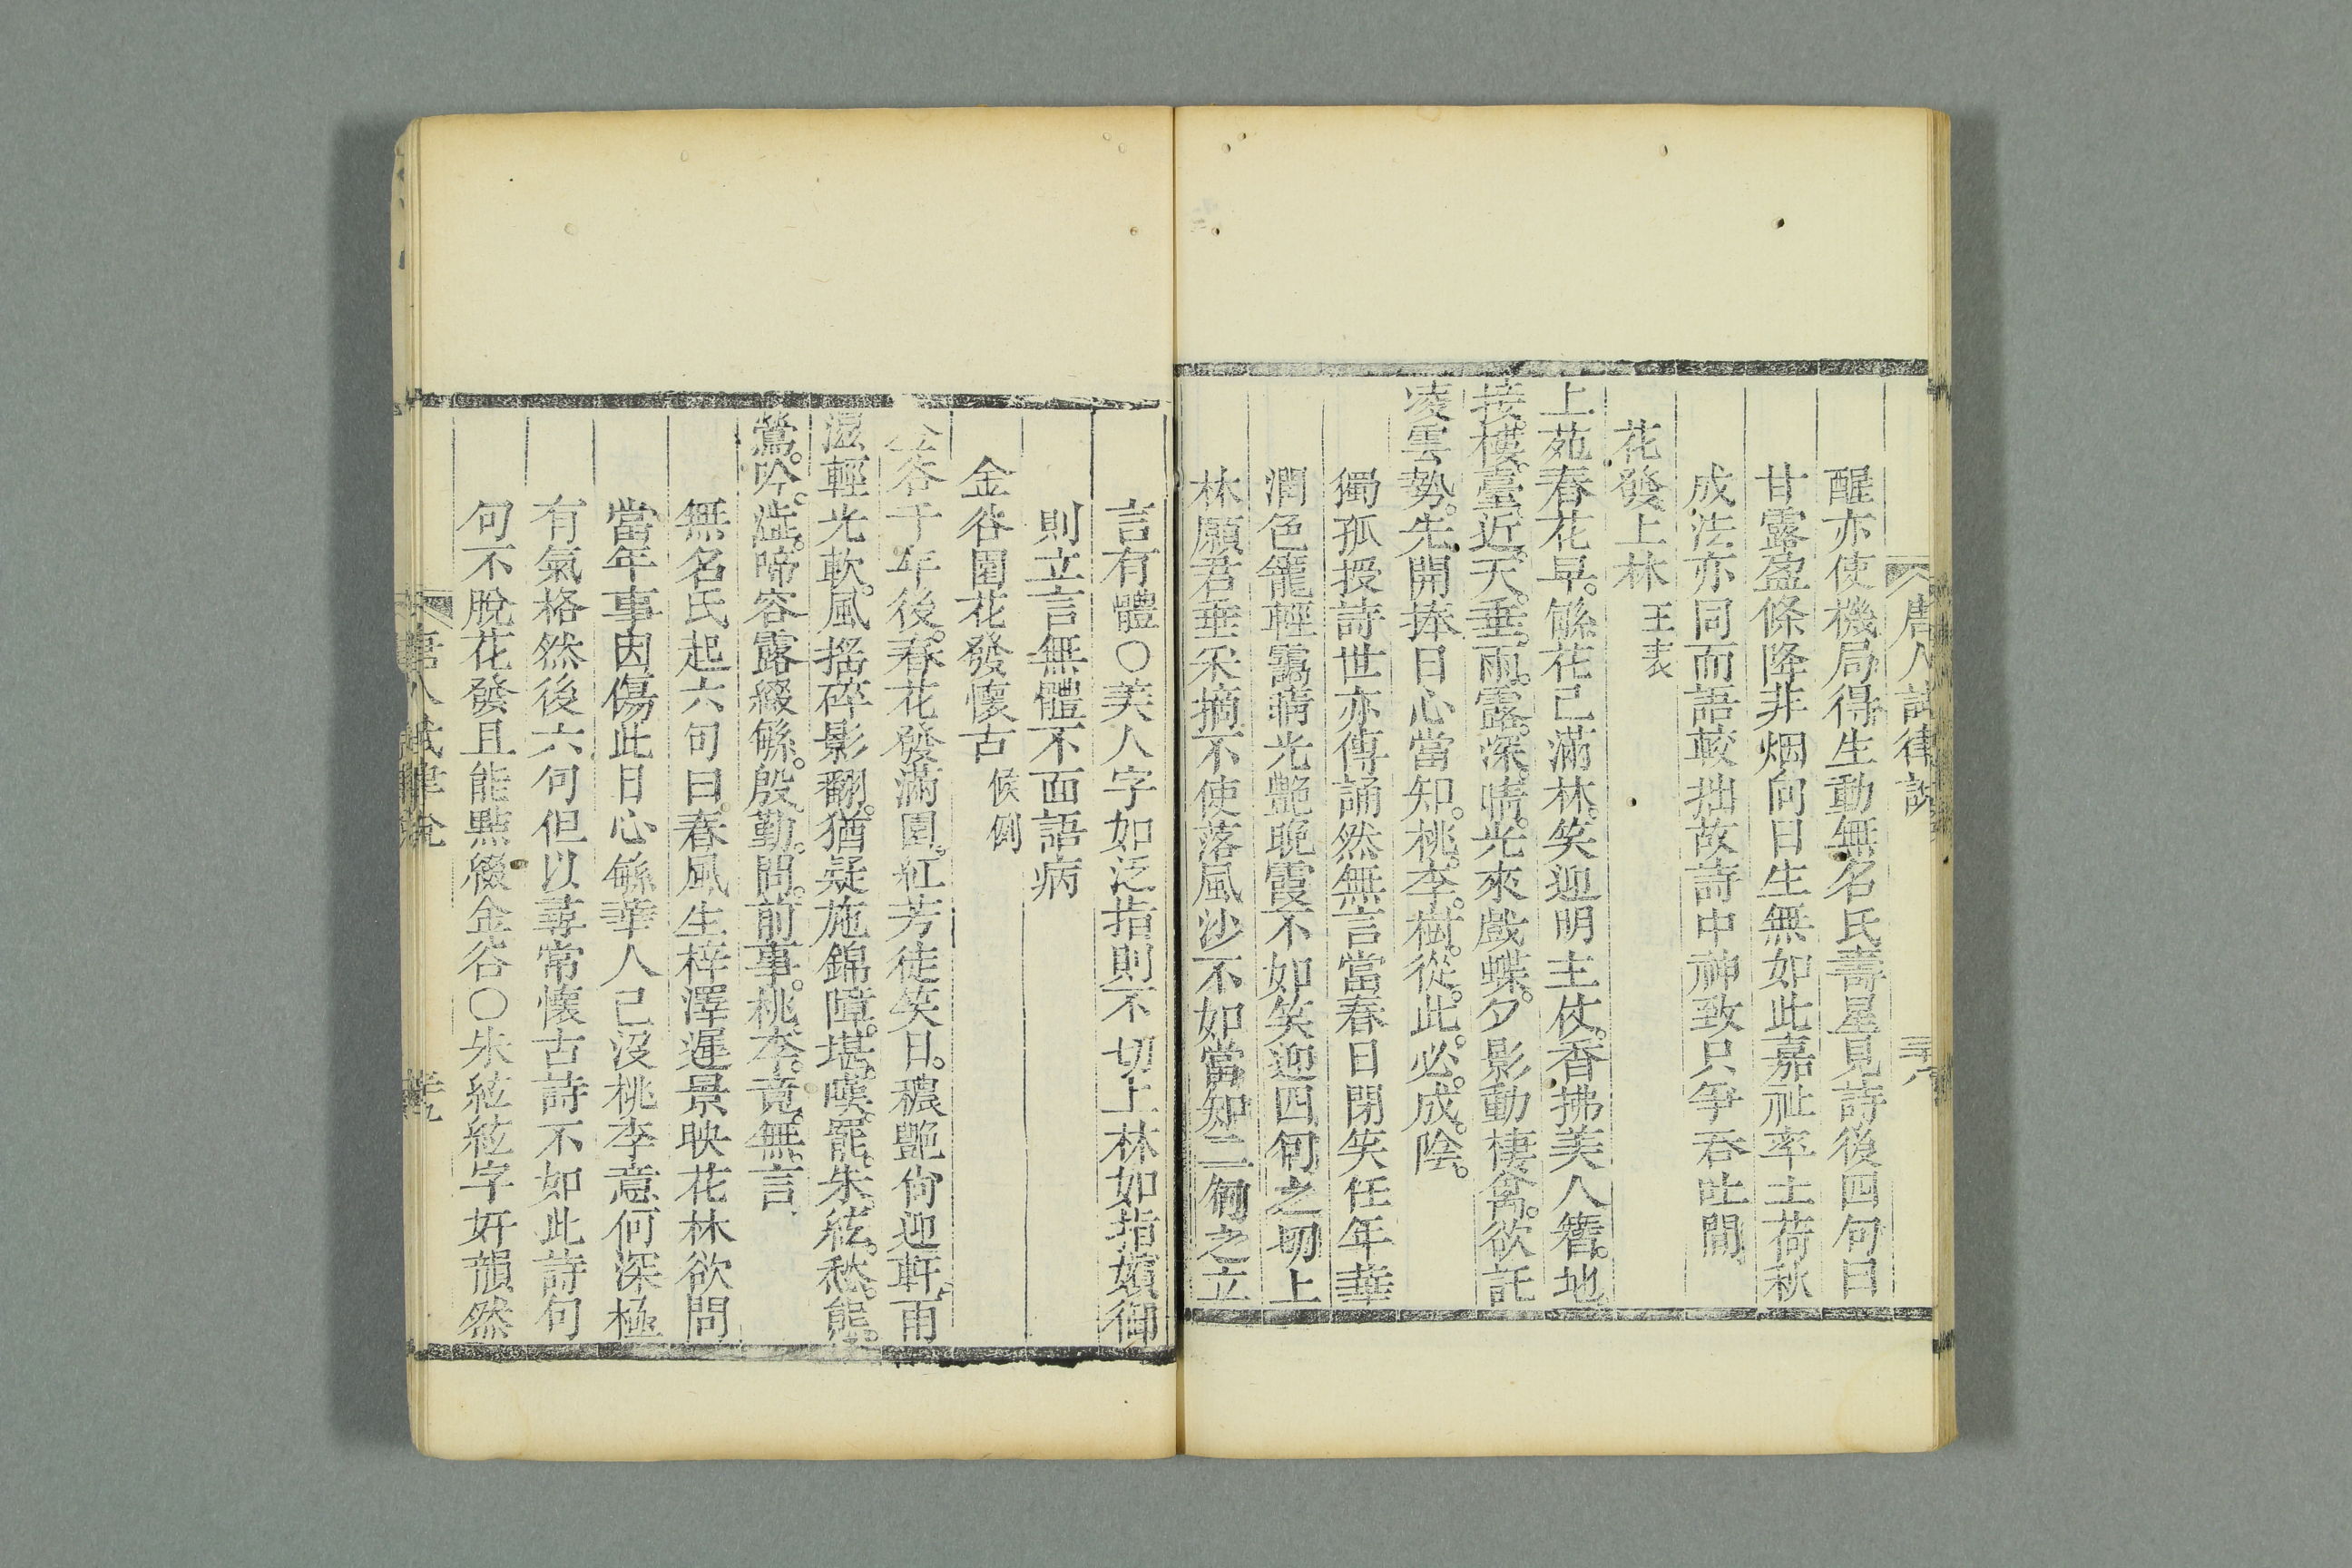 唐人試律說
三八
醒亦使機局得生動無名氏壽星見詩後四句曰
甘露盈條降非烟向日生無如此嘉祉率土荷秋
成法亦同而語較拙故詩中神致只爭吞吐間
花發上林 王表
上苑春花早。緐花已滿林。笑迎明主仗。香拂美人簪。地
接。樓。臺。近。天。垂。雨。露。深。晴。光來戲蝶。夕影動棲禽。欲託
凌雲勢。先開捧日心當知。桃。李。樹。從。此。必。成。陰。
獨孤授詩世亦傳誦然無言當春日閉笑任年華
潤色籠輕靄精光艷晚霞不如笑迎四句之切上
林願君垂采摘不使落風沙不如當知二句之立
言有體○美人字如泛指則不切上林如指嬪御
則立言無體不面語病
金谷園花發懷古 候冽
金谷千年後。春花發滿園。紅芳徒笑日。穠艷尙迎軒。雨
濕輕光軟。風搖碎影翻。猶疑施錦障。堪。嘆。罷。朱。絃。愁。態。
鶯。吟。澁。啼容露綴緐。殷。勤。問。前。事。桃。李。竟。無。言
無名氏起六句曰。春風生梓澤遲景映花林欲問
當年事因傷此日心緐華人已沒桃李意何深極
有氣格然後六句但以尋常懷古詩不如此詩句
句不脫花發且能點綴金谷○朱絃絃字奸韻然
唐人試律說